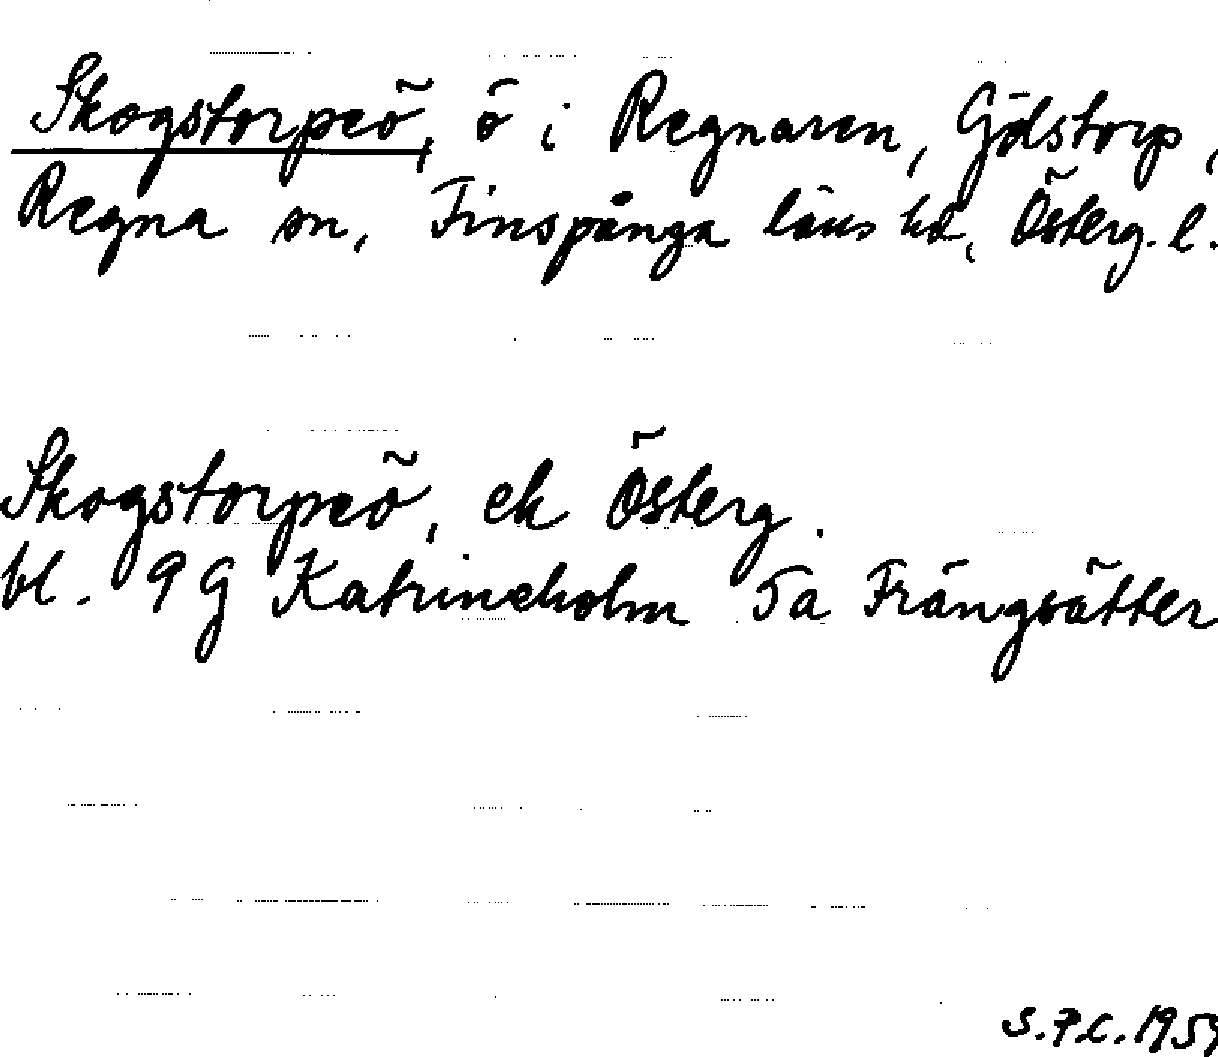 Skogstorpeö, ö i Regnaren, Gölstorp,
Regna sn, Finspånga läns hd, Österg. l.
Skogstorpeö, ek Österg.
bl. 9 G Katrineholm 5a Frängsätter
S.P.C. 1959